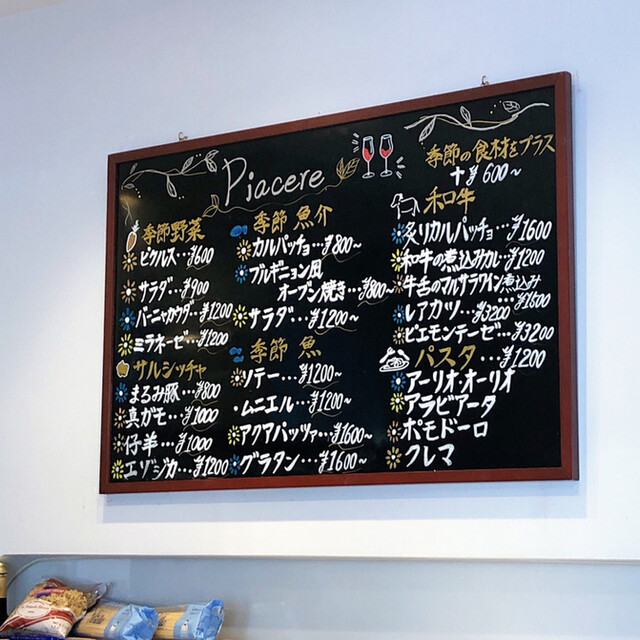 Piacere
季節野菜
ピクルス…¥600
サラダ…¥900
バーニャカウダ…¥1200
ミラネーゼ…¥1200
サルシッチャ
まるみ豚…¥800
真ガモ…¥1000
仔羊…¥1000
エゾジカ…¥1200
季節 魚介
カルパッチョ…¥800~
ブルギニョン風
オーブン焼き…¥800~
サラダ…¥1200~
季節 魚
ソテー…¥1200~
・ムニエル…¥1200~
アクアパッツァ…¥1600~
グラタン…¥1600~
季節の食材をプラス
+¥600~
和牛
炙りカルパッチョ…¥1600
和牛の煮込みカレー¥1200
牛舌のマルサラワイン煮込み
…¥1500
レアカツ…¥3200
ピエモンテーゼ…¥3200
パスタ…¥1200
アーリオ・オーリオ
アラビアータ
ポモドーロ
クレマ